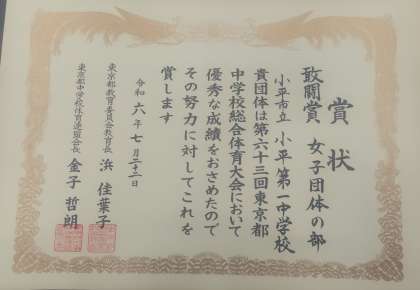 賞状
敢闘賞 女子団体の部
小平市立 小平第一中学校
貴団体は第六十三回東京都
中学校総合体育大会において
優秀な成績をおさめたので
その努力に対してこれを
賞します
令和六年七月二十二日
東京都教育委員会教育長 浜 佳葉子
東京都中学校体育連盟会長 金子 哲朗